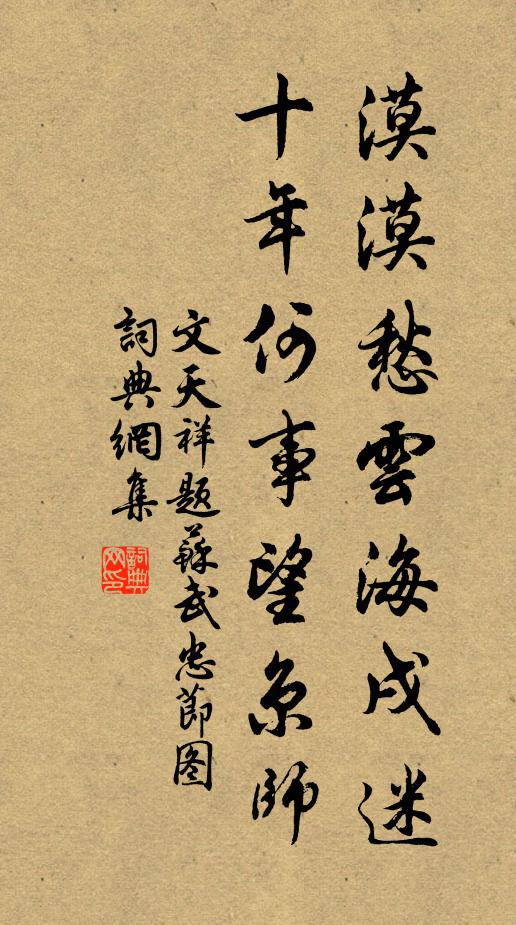 漠漠愁雲海戍迷
十年何事望京師
文天祥題蘇武忠節图
詞典網集
詞典網印